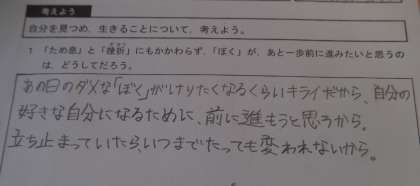 考えよう
自分を見つめ、生きることについて、考えよう。
1 「ため息」と「挫折」にもかかわらず、「ぼく」が、あと一歩前に進みたいと思うの
は、どうしてだろう。
あの日のダメな「ぼく」がけりたくなるくらいキライだから、自分の
好きな自分になるために、前に進もうと思うから。
立ち止まっていたらいつまでたっても変われないから。